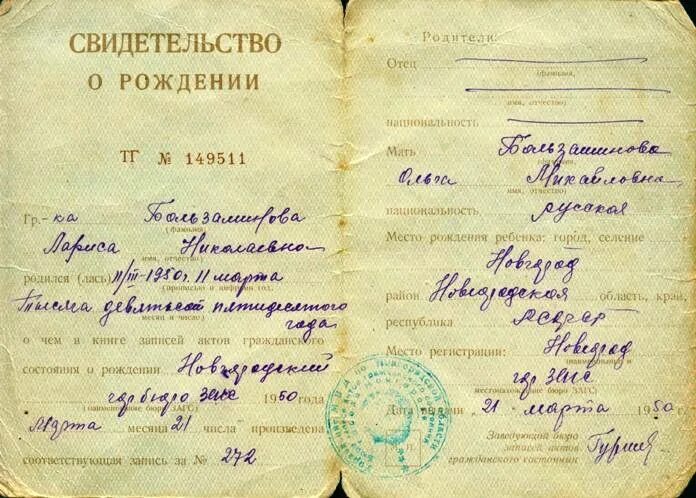 СВИДЕТЕЛЬСТВО
О РОЖДЕНИИ
ТГ № 149511
Гр.-ка Бальзаминова
(фамилия,
Лариса Николаевна
имя, отчество)
родился (лась) 11/III-1950г. 11 марта
(прописью и цифрами год,
тысяча девятьсот пятидесятого
месяц и число)
года
о чем в книге записей актов гражданского
состояния о рождении Новгородский
горбюро ЗАГС 1950 года
(наименование бюро ЗАГС)
марта месяца 21 числа произведена
соответствующая запись за № 272
Родители:
Отец
(фамилия,
имя, отчество)
национальность
Мать Бальзаминова
(фамилия,
Ольга Михайловна
имя, отчество)
национальность русская
Место рождения ребенка: город, селение
Новгород
район Новгородская область, край,
республика РСФСР
Место регистрации: Новгород
гор ЗАГС
местонахождение бюро ЗАГС)
Дата выдачи 21 марта 1950 г.
Заведующий бюро
записей актов
гражданского состояния